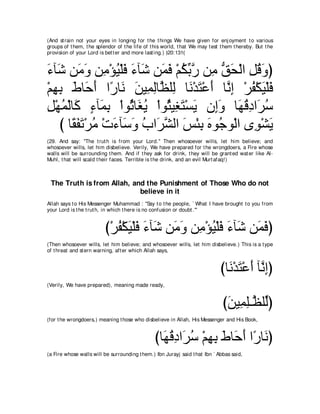 (And strain not your eyes in longing for the things We have given for enjoyment to various
groups of them, the splendor of the life of this world, that We may test them thereby. But the
provision of your Lord is better and more lasting.) (20:131(
﴿وَقُلِ الْحَقُّ مِن رَّبِّكُمْ فَمَن شَآءَ فَلْيُؤْمِن وَمَن شَآءَ
فَلْيَكْفُرْ إِنَّا أَعْتَدْنَا لِلظَّالِمِينَ نَارًا أَحَاطَ بِهِمْ
سُرَادِقُهَا وَإِن يَسْتَغِيثُوا يُغَاثُوا بِمَآءٍ كَالْمُهْلِ
يَشْوِى الْوجُوهَ بِئْسَ الشَّرَابُ وَسَآءَتْ مُرْتَفَقًا ﴾
(29. And say: "The truth is from your Lord." Then whosoever wills, let him believe; and
whosoever wills, let him disbelieve. Verily, We have prepared for the wrongdoers, a Fire whose
walls will be surrounding them. And if they ask for drink, they will be granted water like Al-
Muhl, that will scald their faces. Terrible is the drink, and an evil Murtafaq!)
The Truth is from Allah, and the Punishment of Those Who do not
believe in it
Allah says to His Messenger Muhammad : "Say to the people, `What I have brought to you from
your Lord is the truth, in which there is no confusion or doubt.'"
﴿فَمَن شَآءَ فَلْيُؤْمِن وَمَن شَآءَ فَلْيَكْفُرْ﴾
(Then whosoever wills, let him believe; and whosoever wills, let him disbelieve.) This is a type
of threat and stern warning, after which Allah says,
﴿إِنَّآ أَعْتَدْنَا﴾
(Verily, We have prepared), meaning made ready,
﴿لِلظَّـلِمِينَ﴾
(for the wrongdoers,) meaning those who disbelieve in Allah, His Messenger and His Book,
﴿نَارًا أَحَاطَ بِهِمْ سُرَادِقُهَا﴾
(a Fire whose walls will be surrounding them.) Ibn Jurayj said that Ibn `Abbas said,